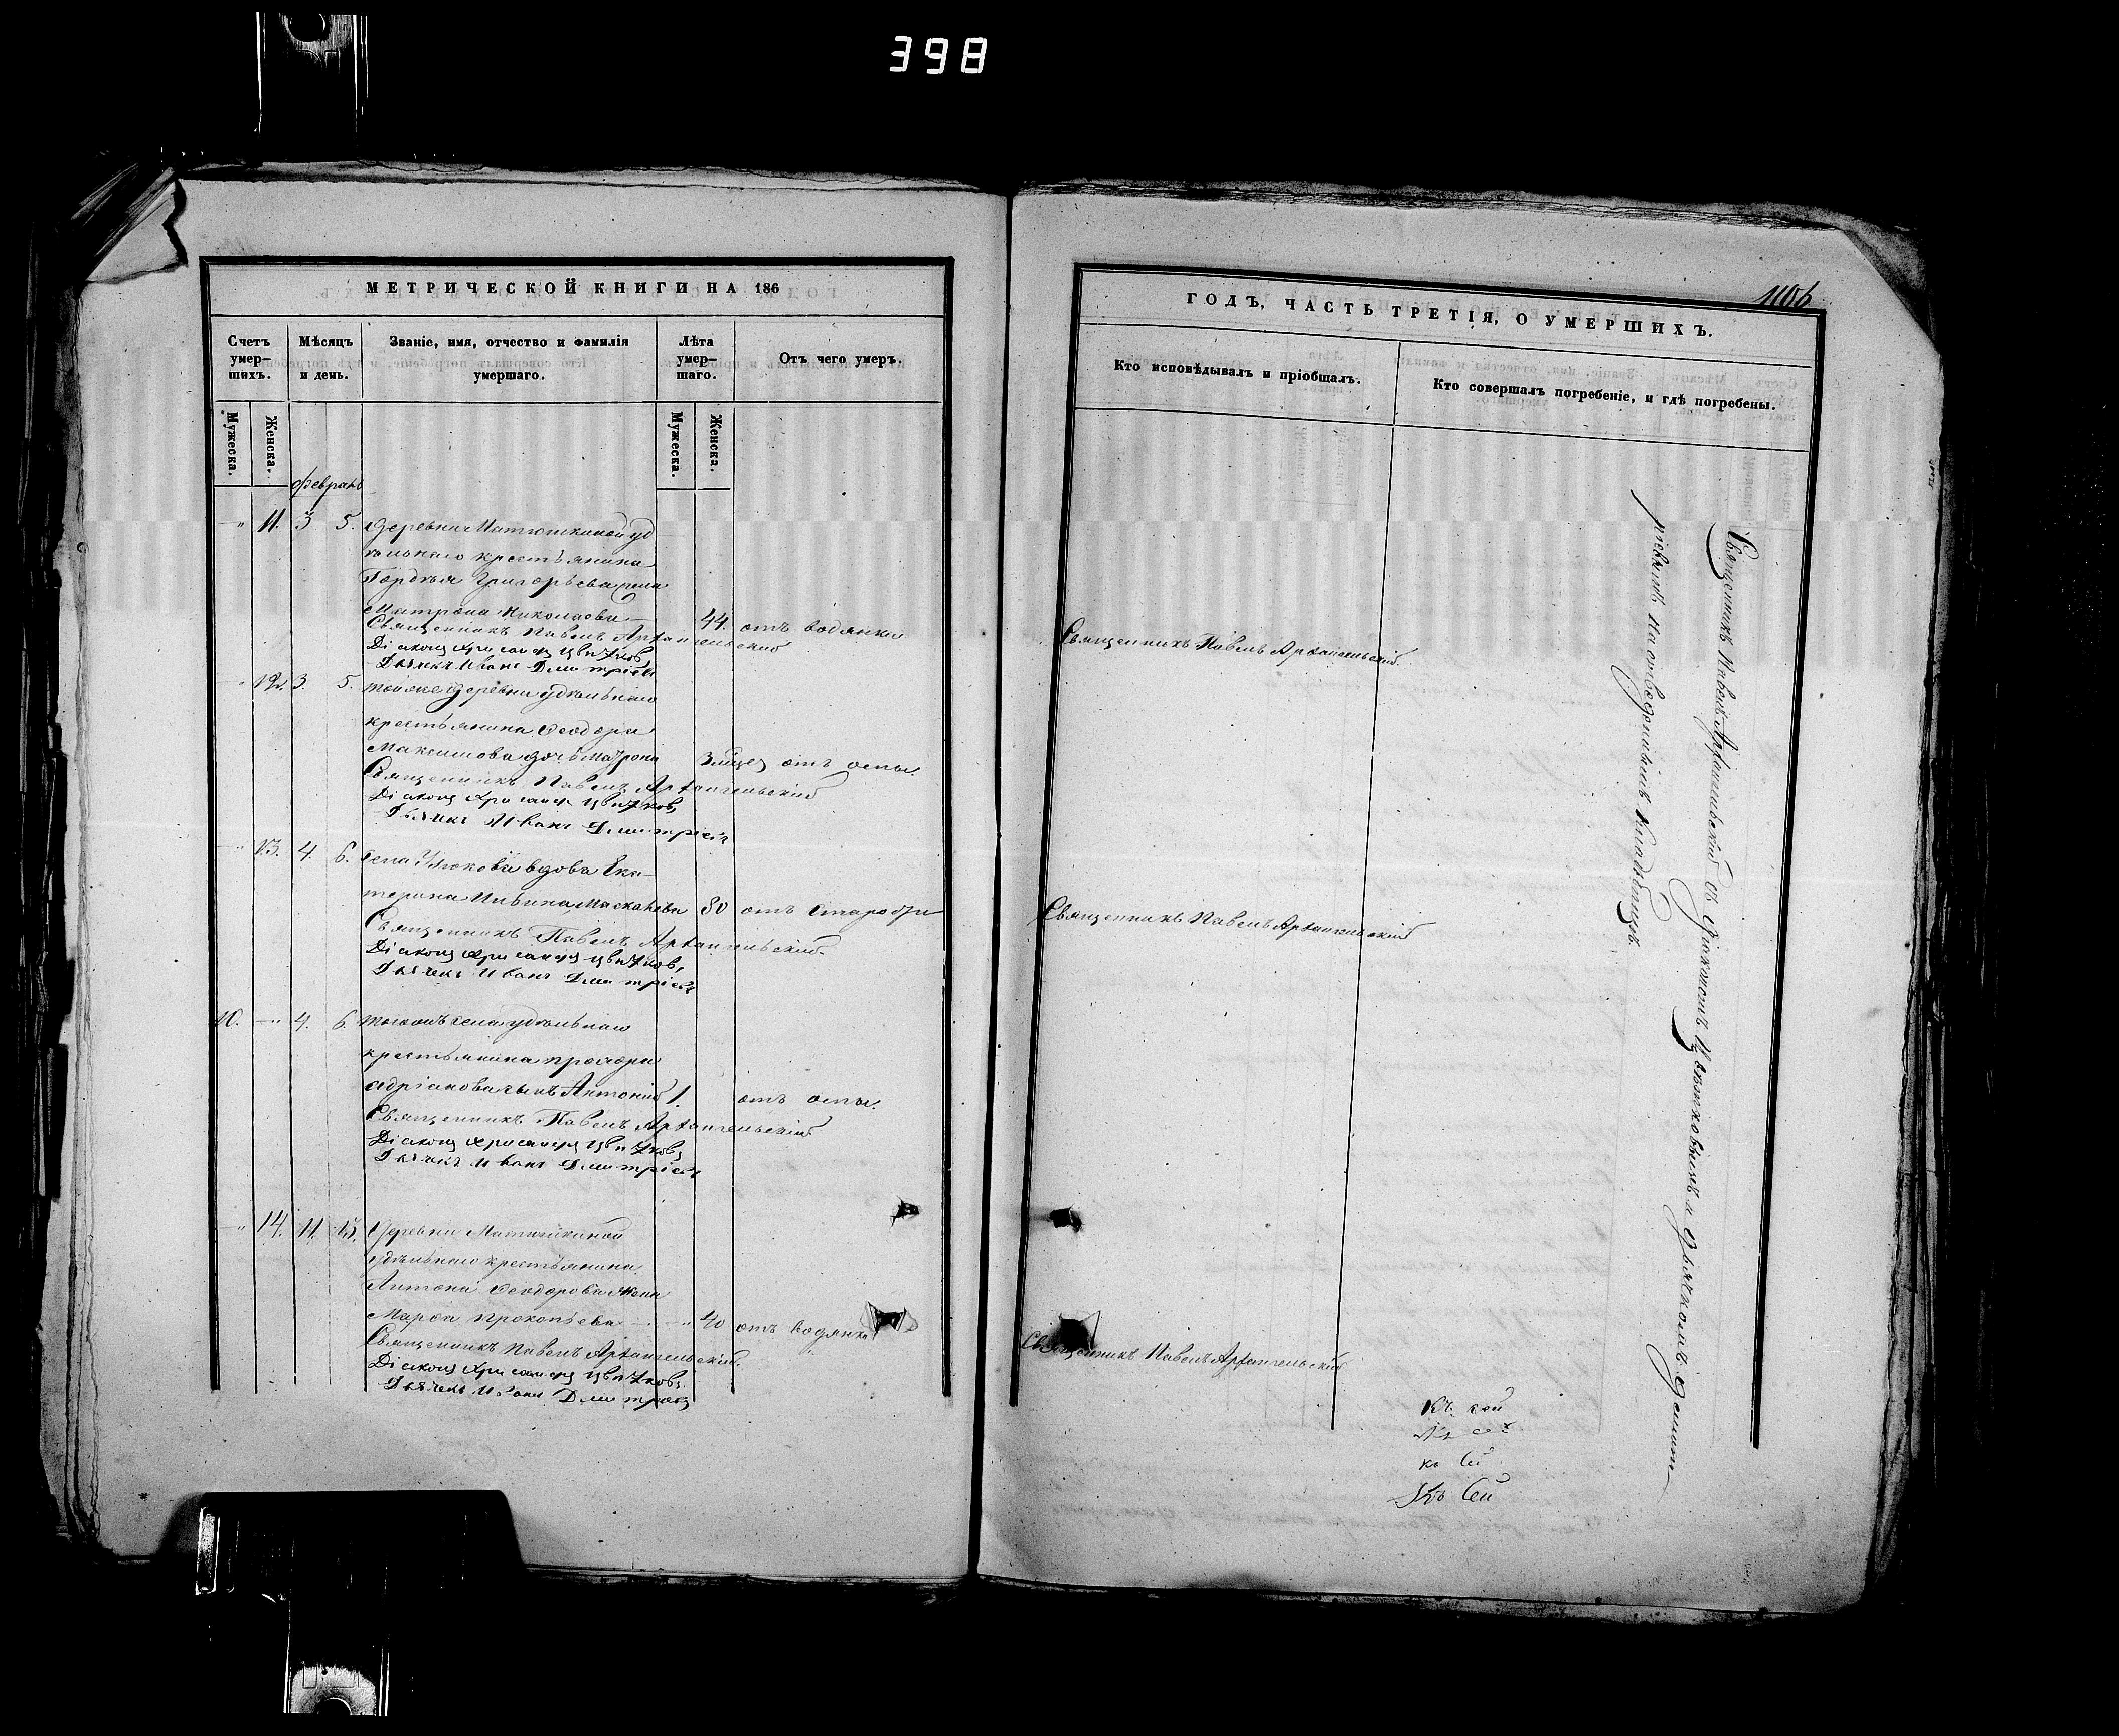 398
МЕТРИЧЕСКОЙ КНИГИ НА 186
Счетъ умер-шихъ.
Мѣсяцъ и день.
Званіе, имя, отчество и фамилія умершаго.
Лѣта умер-шаго.
Отъ чего умеръ.
Мужеска.
Женска.
Мужеска.
Женска.
Февраль
11. 3 5. Деревни Матюшкиной уд
ѣльнаго крестьянина
Гордѣя Григорьева жена
Матрона Николаева 44. отъ водянки
Священникъ Павелъ Архангельскій
Діаконъ Хрисанфъ Цвѣтковъ
Дьячекъ Иванъ Дмитріевъ
12. 3. 5. Тойже деревни удѣльнаго
крестьянина Феодора
Максимова дочь Матрона отъ оспы.
Священникъ Павелъ Архангельскій
Діаконъ Хрисанфъ Цвѣтковъ
Дьячекъ Иванъ Дмитріевъ
13. 4. 6. Села вдова Ека-
терина 80 отъ старости
Священникъ Павелъ Архангельскій
Діаконъ Хрисанфъ Цвѣтковъ,
Дьячекъ Иванъ Дмитріевъ
10. 4. 6. Тогожъ села удѣльнаго
крестьянина
Адріанова сынъ Антоній 1. отъ оспы.
Священникъ Павелъ Архангельскій
Діаконъ Хрисанфъ Цвѣтковъ
Дьячекъ Иванъ Дмитріевъ
14. 11. 13. Деревни Матюшкиной
удѣльнаго крестьянина
Антона Феодорова жена
Марѳа Прокопьева 40 отъ водянки
Священникъ Павелъ Архангельскій.
Діаконъ Хрисанфъ Цвѣтковъ.
Дьячекъ Иванъ Дмитріевъ
1106
ГОДЪ, ЧАСТЬ ТРЕТІЯ, О УМЕРШИХЪ.
Кто исповѣдывалъ и пріобщалъ.
Кто совершалъ погребеніе, и гдѣ погребены.
Священникъ Павелъ Архангельскій
Священникъ Павелъ Архангельскій
Священникъ Павелъ Архангельскій
Священникъ Павелъ Архангельскій съ діакономъ Цвѣтковымъ и дьячкомъ Дмит-
ріевымъ на отведенномъ кладбищѣ.
Къ сей
Къ сей